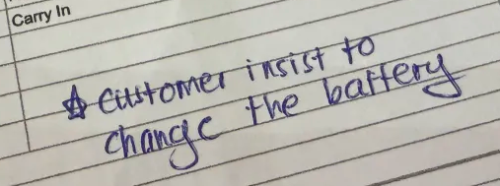 Carry In
☆ Customer insist to
change the battery